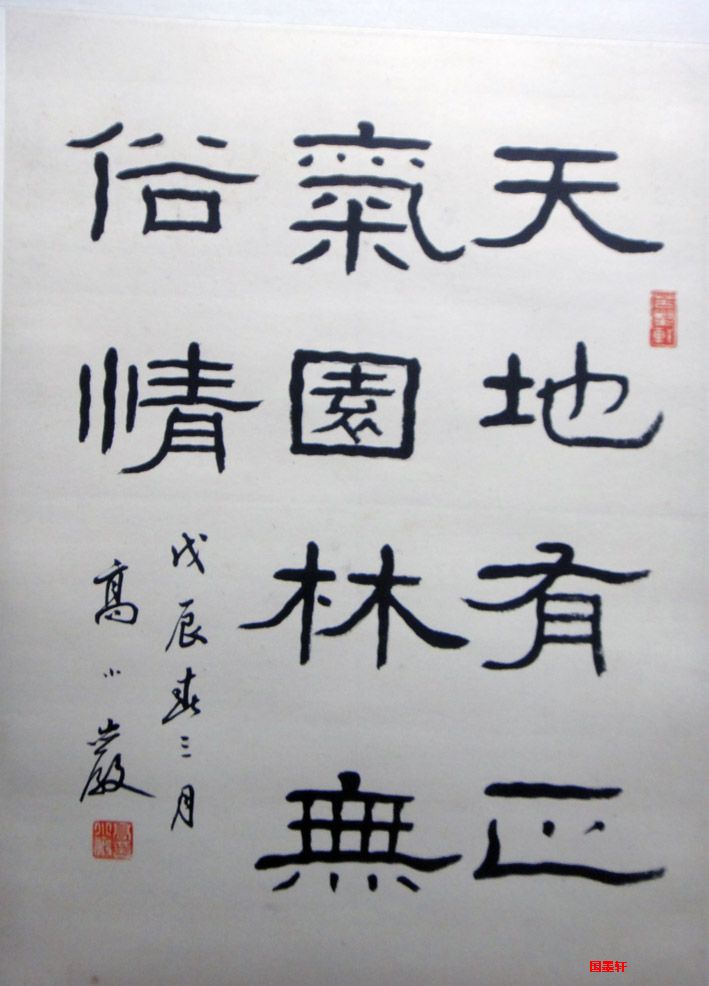 天地有正
氣園林無
俗情
戊辰春三月
高小巖
国墨轩